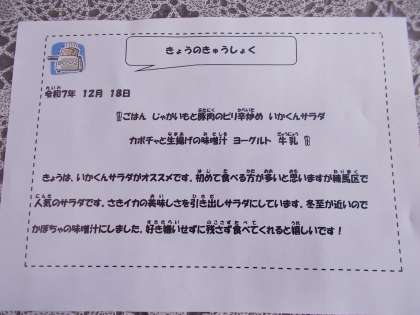 きょうのきゅうしょく
令和7年 12月 18日
ごはん じゃがいもと豚肉のピリ辛炒め いかくんサラダ
カボチャと生揚げの味噌汁 ヨーグルト 牛乳
きょうは、いかくんサラダがオススメです。初めて食べる方が多いと思いますが練馬区で
人気のサラダです。さきイカの美味しさを引き出しサラダにしています。冬至が近いので
かぼちゃの味噌汁にしました。好き嫌いせずに残さず食べてくれると嬉しいです！